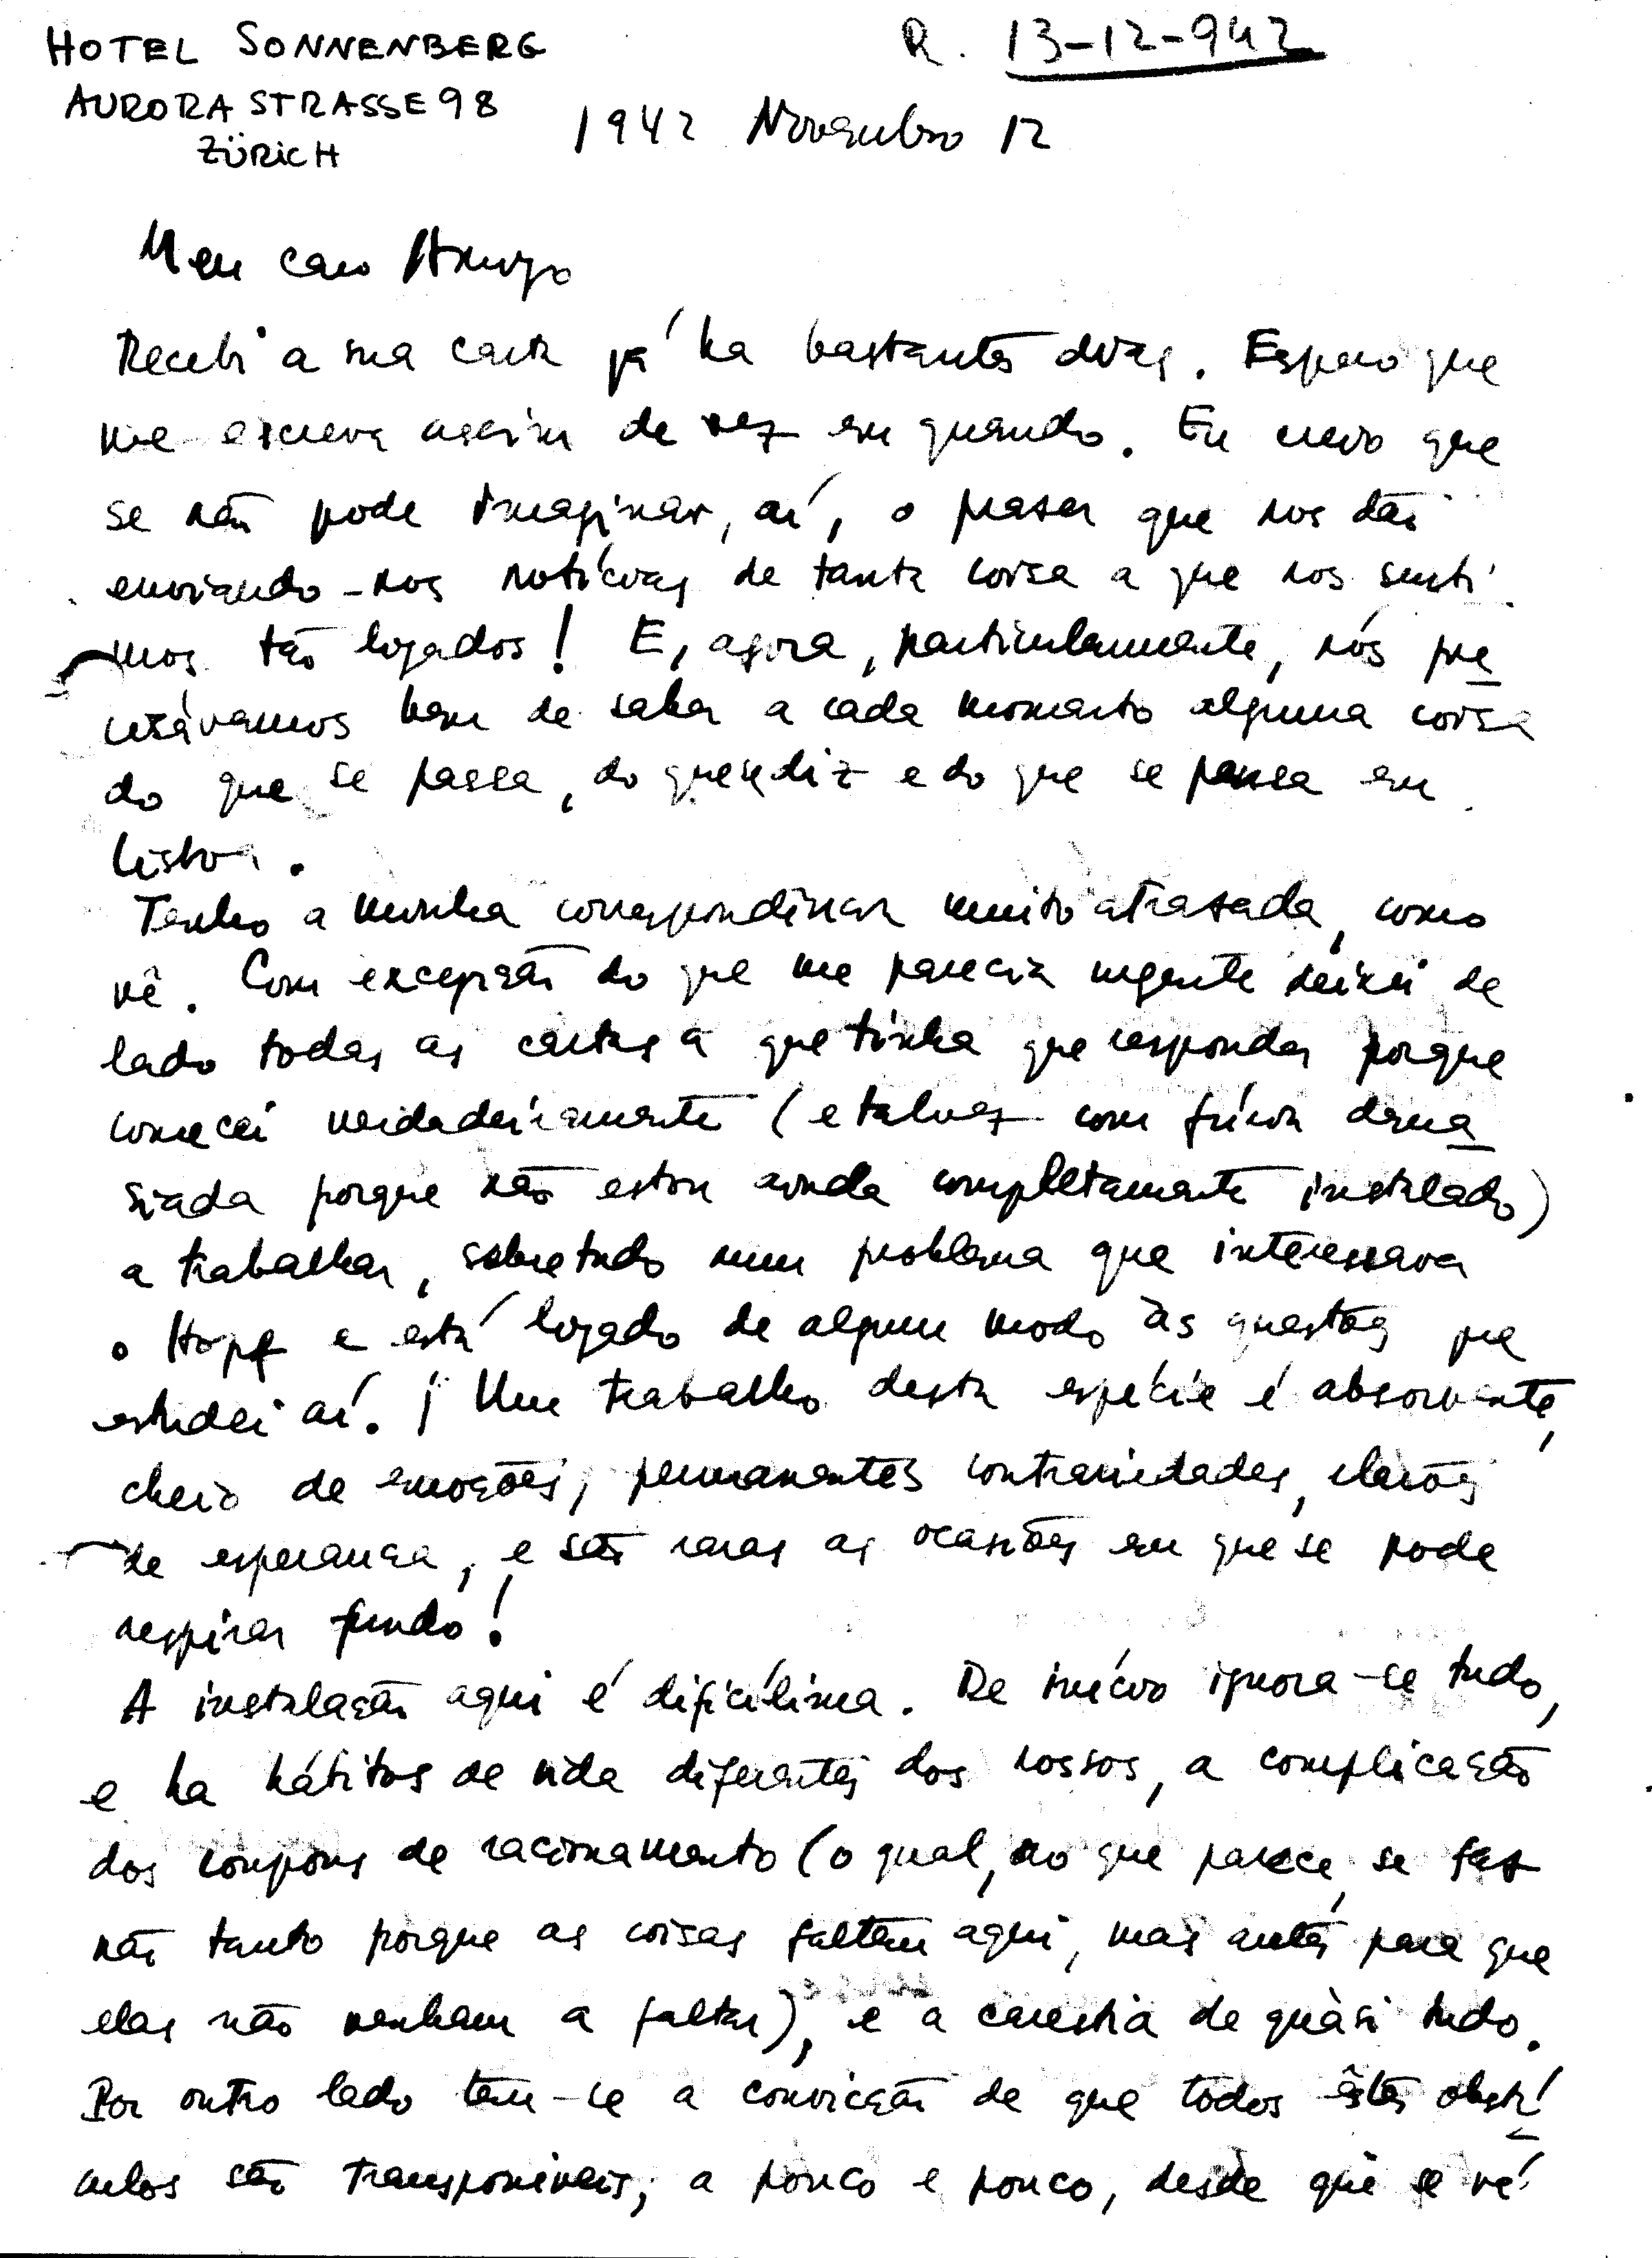 HOTEL SONNENBERG
R. 13-12-942
AURORA STRASSE 98
ZÜRICH
1942 Novembro 12
Meu caro Amigo
Recebi a sua carta já ha bastantes dias. Espero que
me escreva assim de vez em quando. Eu creio que
se não pode imaginar, aí, o prazer que nos dão
enviando-nos notícias de tanta coisa a que nos senti
mos tão ligados! E, agora, particularmente, nós pre
cisávamos bem de saber a cada momento alguma coisa
do que se passa, do que se diz e do que se pensa em
Lisboa.
Tenho a minha correspondência muito atrasada, como
vê. Com excepção do que me parecia urgente deixei de
lado todas as cartas a que tinha que responder porque
comecei verdadeiramente (e talvez com fúria dema
siada porque não estou ainda completamente instalado)
a trabalhar, sobretudo num problema que interessava
o Hopf e está ligado de algum modo às questões que
estudei aí. ¡ Um trabalho desta espécie é absorvente,
cheio de emoções, permanentes contrariedades, clarões
de esperança, e são raras as ocasiões em que se pode
respirar fundo!
A instalação aqui é dificílima. De início ignora-se tudo,
e ha hábitos de vida diferentes dos nossos, a complicação
dos coupons de racionamento (o qual, ao que parece, se faz
não tanto porque as coisas faltem aqui, mas antes para que
elas não venham a faltar), e a carestia de quàsi tudo.
Por outro lado tem-se a convicção de que todos êstes obstá
culos são transponíveis, a pouco e pouco, desde que se vê